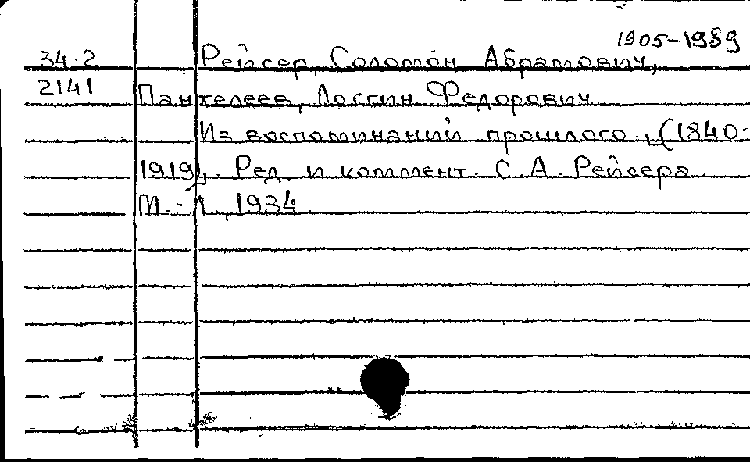 1905-1989
34-2 Рейсер, Соломон Абрамович,
2141 Пантелеев, Лонгин Федорович
Из воспоминаний прошлого, (1840-
1919). Ред. и коммент. С.А. Рейсера.
М.-Л, 1934